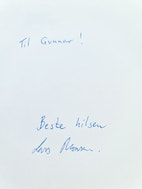 Til Gunnar!
Beste hilsen
Lars